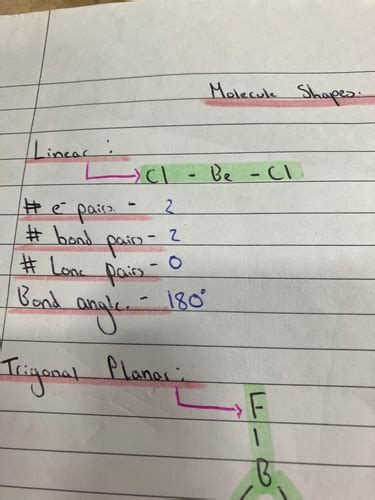 Molecule Shapes.
Linear :
Cl - Be - Cl
# e⁻ pairs - 2
# bond pairs - 2
# Lone pairs - 0
Bond angle. - 180°
Trigonal Planar:
F
|
B